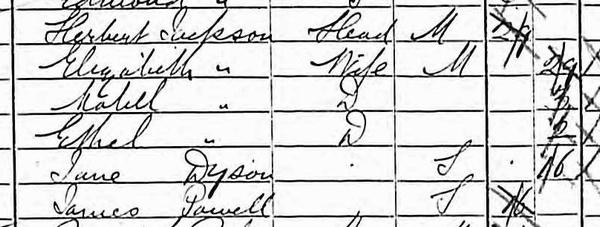 Herbert Jackson Head M 29
Elizabeth " Wife M 29
Mabel " D
Ethel " D 2
Jane Dyson S 16
James Powell S 16